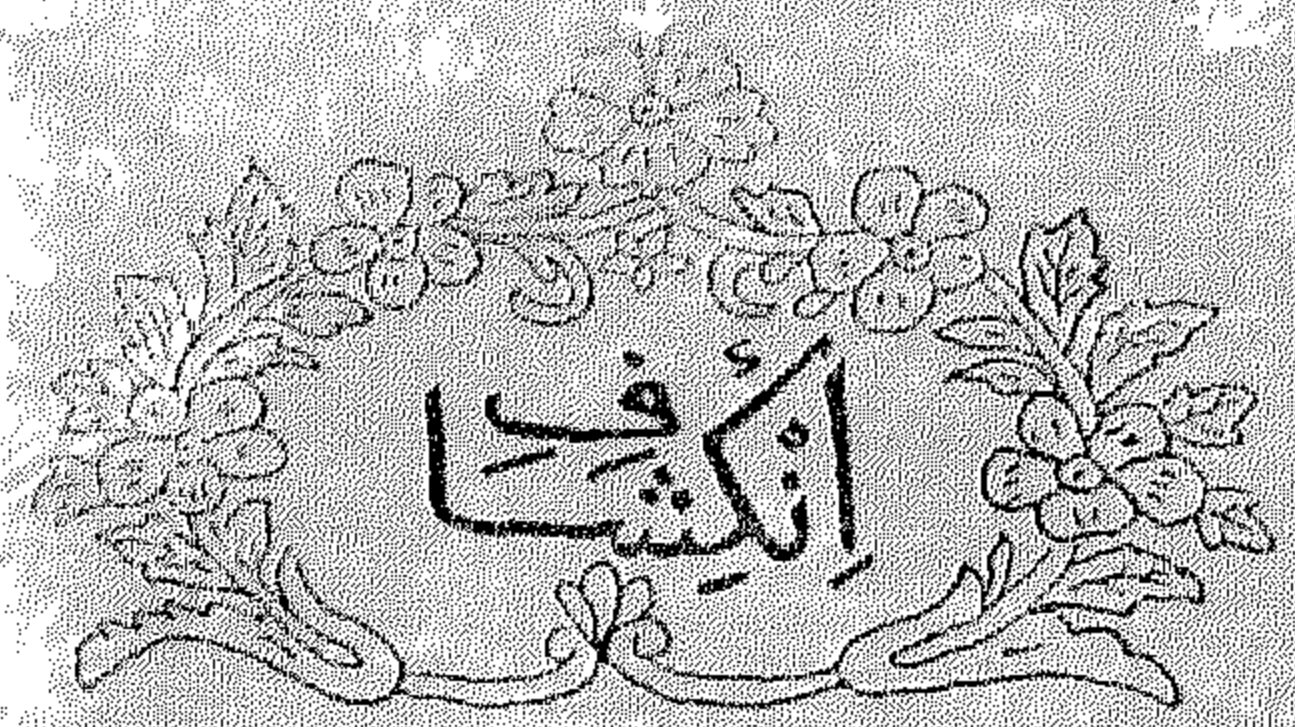 اِنْکِشَاف